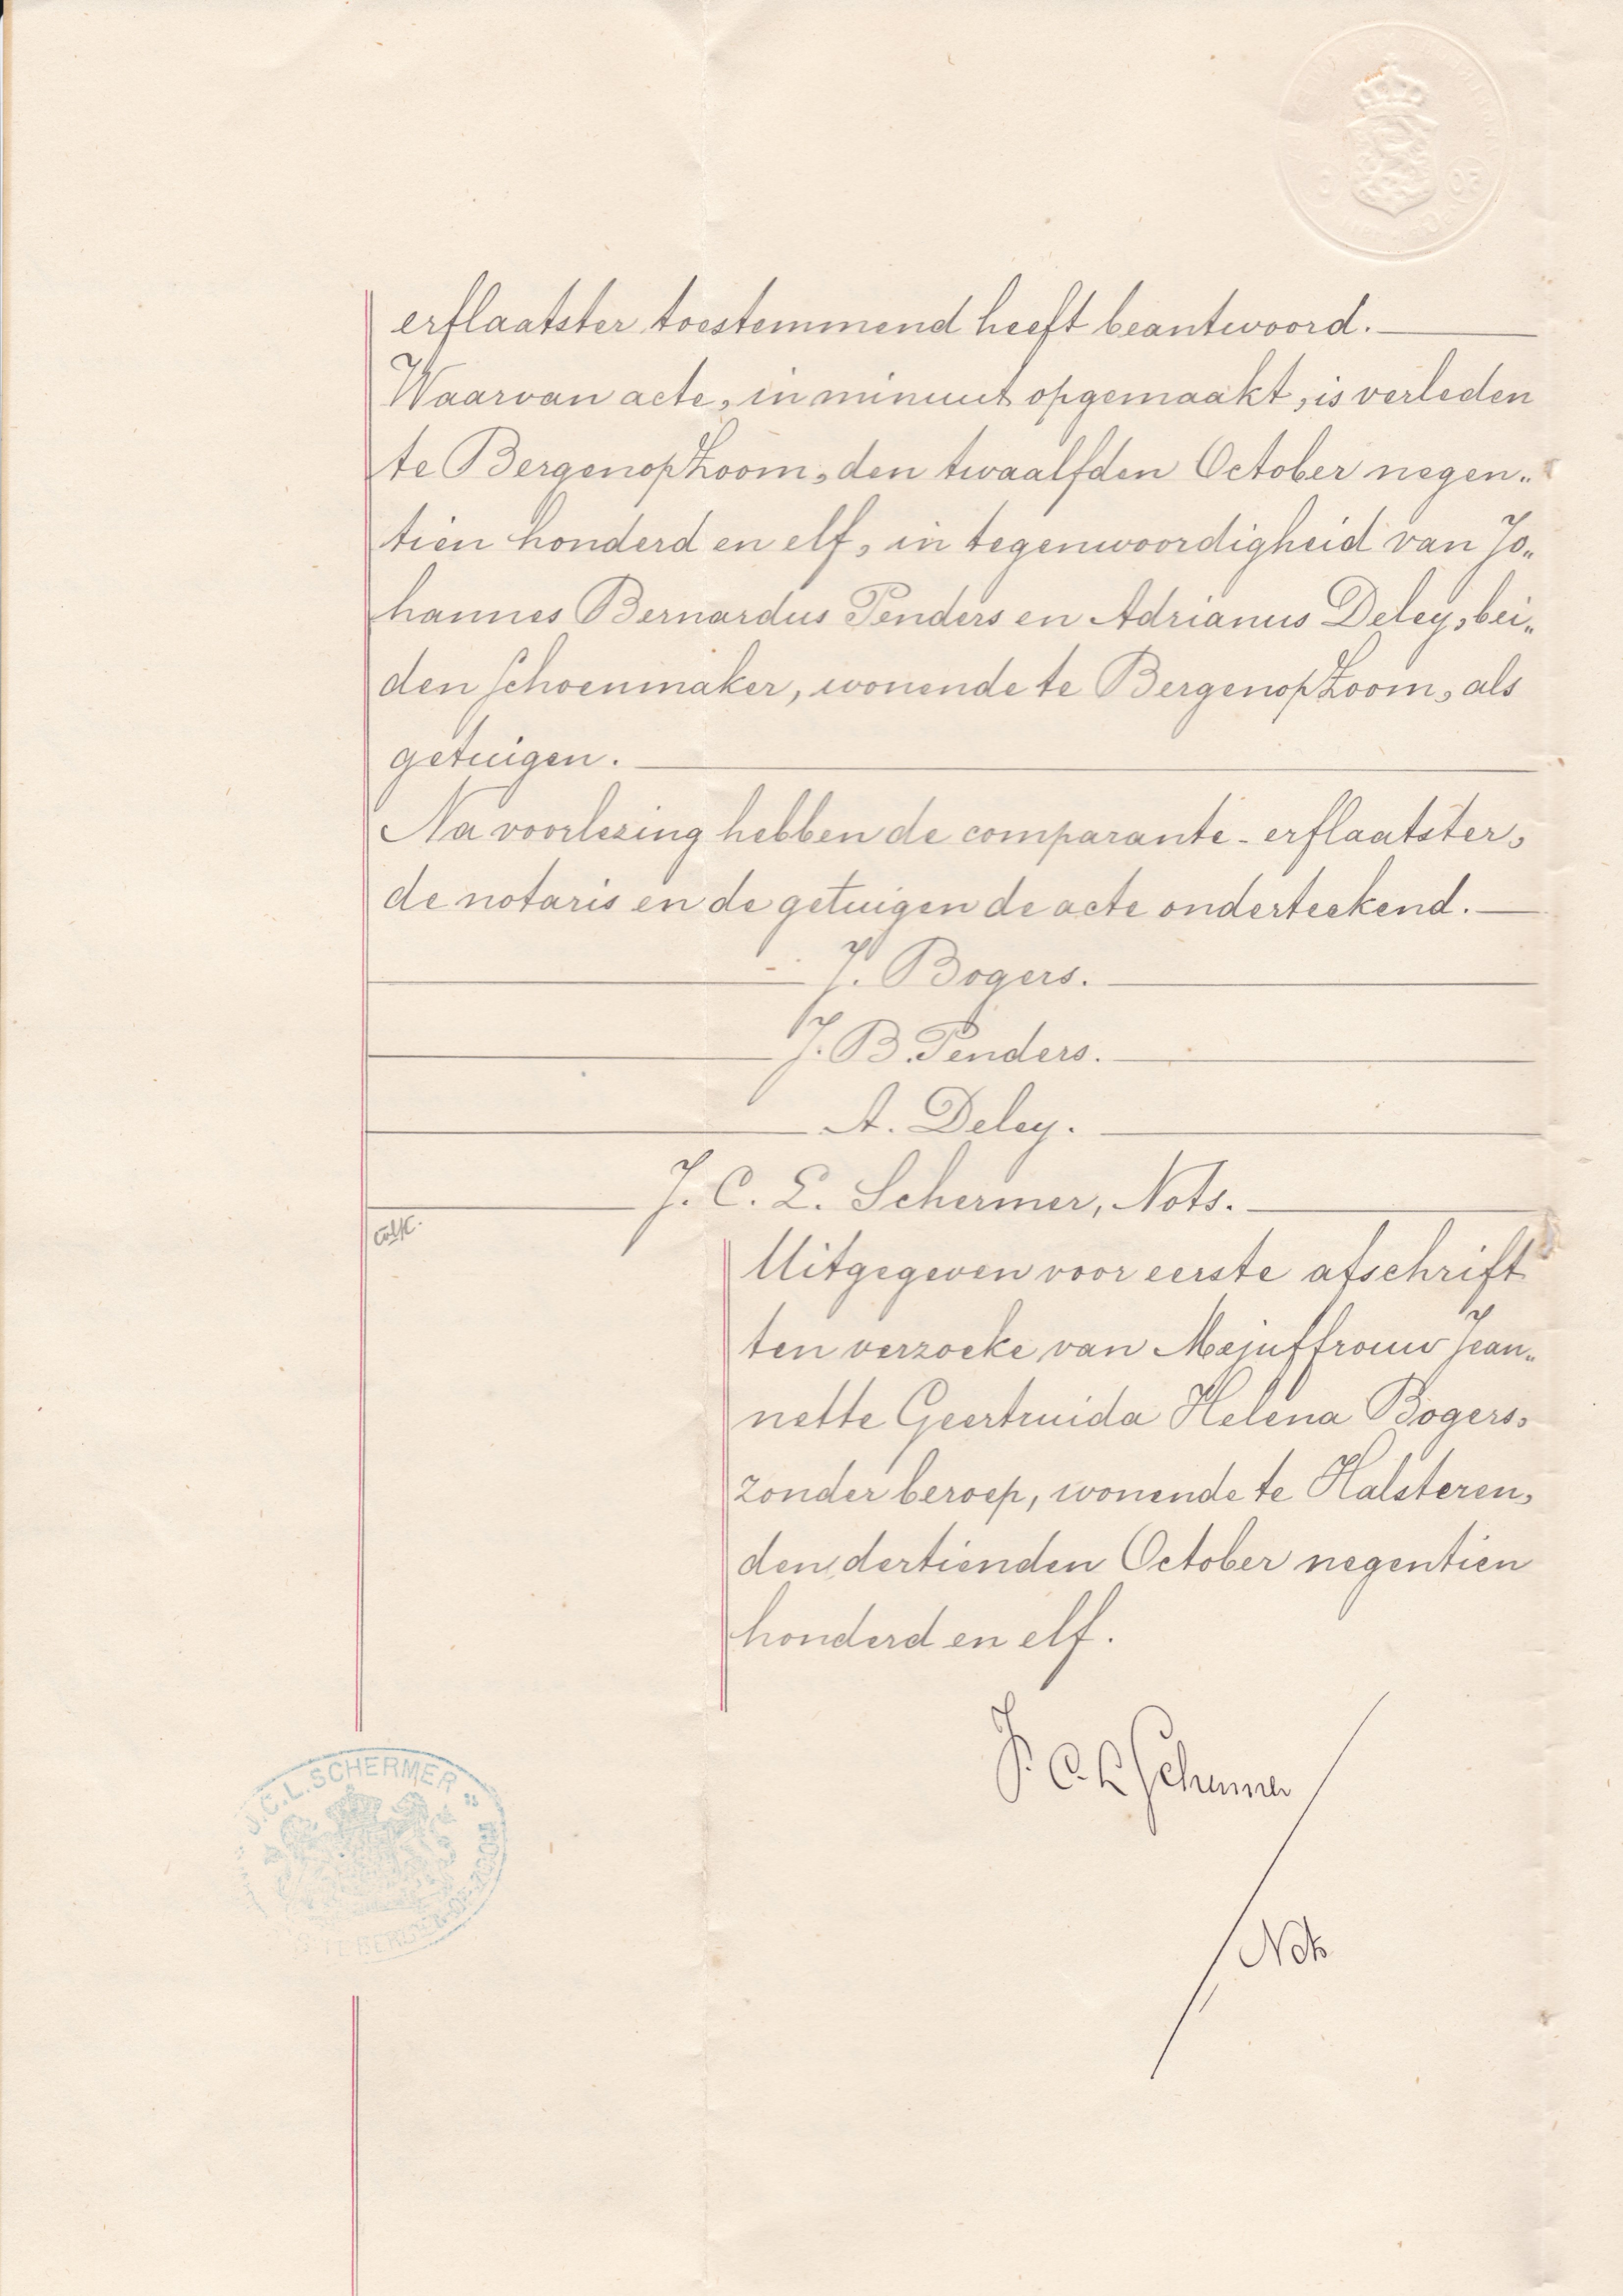 erflaatster toestemmend heeft beantwoord.
Waarvan acte, in minuut opgemaakt, is verleden
te BergenopZoom, den twaalfden October negen„
tien honderd en elf, in tegenwoordigheid van Jo„
hannes Bernardus Penders en Adrianus Deley, bei„
den schoenmaker, wonende te BergenopZoom, als
getuigen.
Na voorlezing hebben de comparante-erflaatster,
de notaris en de getuigen de acte onderteekend.
J. Bogers.
J. B. Penders.
A. Deley.
J. C. L. Schermer, Nots.
Uitgegeven voor eerste afschrift
ten verzoeke van Mejuffrouw Jean„
nette Geertruida Helena Bogers,
zonder beroep, wonende te Halsteren,
den dertienden October negentien
honderd en elf.
J. C. L Schermer
Nots
J.C.L. SCHERMER
TE BERGEN-OP-ZOOM